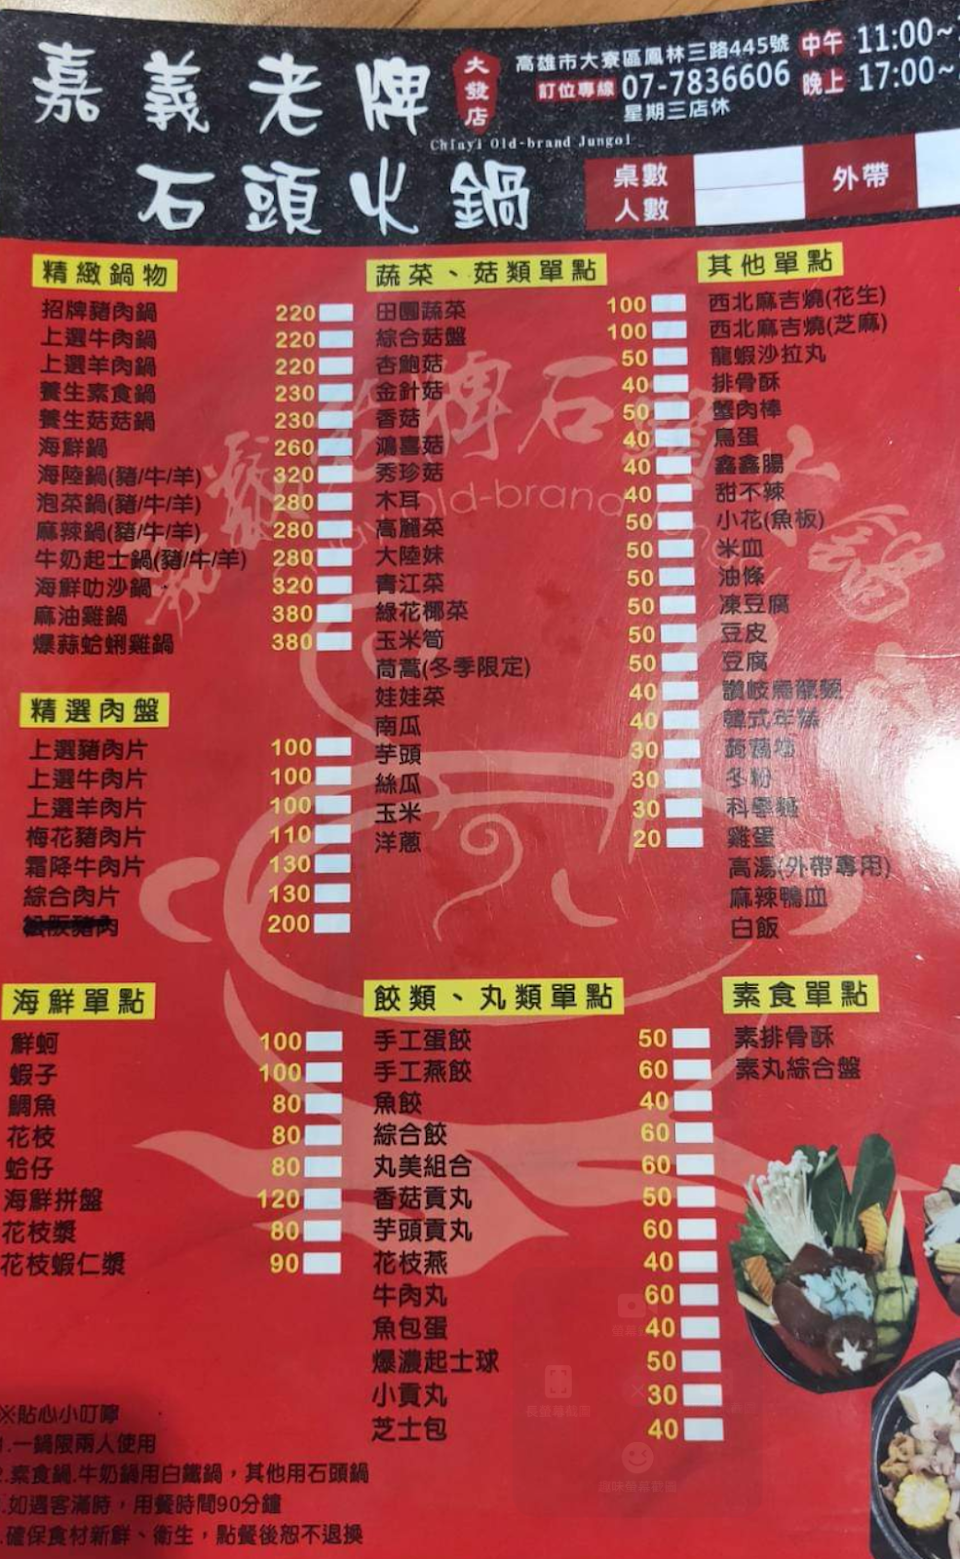 嘉義老牌
大發店
石頭火鍋
Chiayi Old-brand Jungol
高雄市大寮區鳳林三路445號
訂位專線 07-7836606
星期三店休
中午 11:00~
晚上 17:00~
桌數
人數
外帶
精緻鍋物
招牌豬肉鍋 220
上選牛肉鍋 220
上選羊肉鍋 220
養生素食鍋 230
養生菇菇鍋 230
海鮮鍋 260
海陸鍋(豬/牛/羊) 320
泡菜鍋(豬/牛/羊) 280
麻辣鍋(豬/牛/羊) 280
牛奶起士鍋(豬/牛/羊) 280
海鮮叻沙鍋 320
麻油雞鍋 380
爆蒜蛤蜊雞鍋 380
精選肉盤
上選豬肉片 100
上選牛肉片 100
上選羊肉片 100
梅花豬肉片 110
霜降牛肉片 130
綜合肉片 130
松阪豬肉 200
海鮮單點
鮮蚵 100
蝦子 100
鯛魚 80
花枝 80
蛤仔 80
海鮮拼盤 120
花枝漿 80
花枝蝦仁漿 90
蔬菜、菇類單點
田園蔬菜 100
綜合菇盤 100
杏鮑菇 50
金針菇 40
香菇 50
鴻喜菇 40
秀珍菇 40
木耳 40
高麗菜 50
大陸妹 50
青江菜 50
綠花椰菜 50
玉米筍 50
茼蒿(冬季限定) 50
娃娃菜 40
南瓜 40
芋頭 30
絲瓜 30
玉米 30
洋蔥 20
餃類、丸類單點
手工蛋餃 50
手工燕餃 60
魚餃 40
綜合餃 60
丸美組合 60
香菇貢丸 50
芋頭貢丸 60
花枝燕 40
牛肉丸 60
魚包蛋 40
爆濃起士球 50
小貢丸 30
芝士包 40
其他單點
西北麻吉燒(花生)
西北麻吉燒(芝麻)
龍蝦沙拉丸
排骨酥
蟹肉棒
鳥蛋
鑫鑫腸
甜不辣
小花(魚板)
米血
油條
凍豆腐
豆皮
豆腐
讚岐烏龍麵
韓式年糕
蒟蒻捲
冬粉
科學麵
雞蛋
高湯(外帶專用)
麻辣鴨血
白飯
素食單點
素排骨酥
素丸綜合盤
※貼心小叮嚀
.一鍋限兩人使用
2.素食鍋.牛奶鍋用白鐵鍋，其他用石頭鍋
.如遇客滿時，用餐時間90分鐘
.確保食材新鮮、衛生，點餐後恕不退換